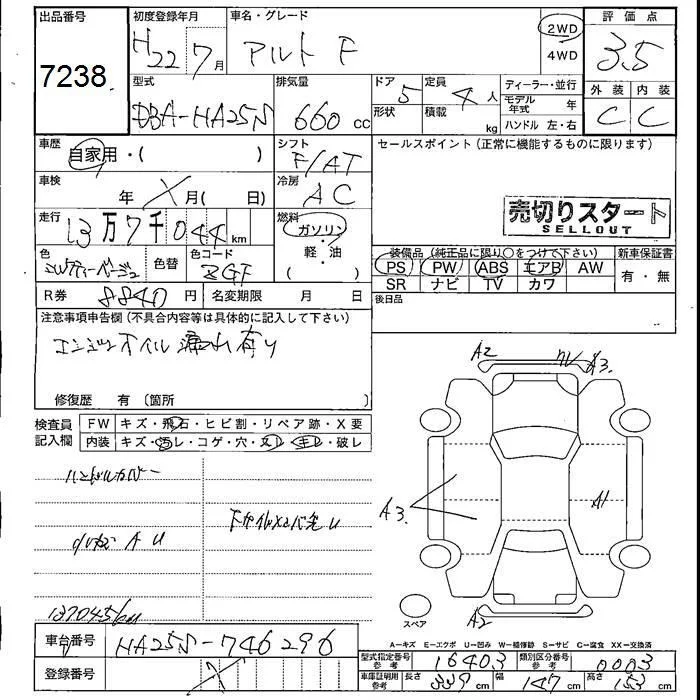 出品番号
7238
初度登録年月
H22 7月
車名・グレード
アルト F
2WD
4WD
評価点
3.5
型式
DBA-HA25S
排気量
660 cc
ドア 5
形状
定員 4人
積載 kg
ディーラー・並行
モデル年式 年
ハンドル 左・右
外装 内装
C C
車歴
自家用・( )
シフト
F/AT
セールスポイント(正常に機能するものに限ります)
車検
年 X 月( 日)
冷房
AC
売切りスタート
SELLOUT
走行
13万7千044km
燃料
ガソリン
・
軽・油
( )
色
ミルクティーベージュ
色替
色コード
ZGF
装備品(純正品に限り〇をつけて下さい)
PS PW ABS エアB AW
SR ナビ TV カワ
新車保証書
有・無
R券 8840円
名変期限 月 日
後日品
注意事項申告欄(不具合内容等は具体的に記入して下さい)
エンジンオイル漏れ有り
修復歴 有(箇所 )
検査員
記入欄
FW キズ・飛石・ヒビ割・リペア跡・X要
内装 キズ・汚レ・コゲ・穴・スレ・毛レ・破レ
ハンドルカバー
A U
137045km
A2
A3.
A3.
A1
A2
スペア
A−キズ E−エクボ U−凹み W−補修跡 S−サビ C−腐食 XX−交換済
車台番号 HA25S-746296
登録番号 X
型式指定番号
参考
16403
類別区分番号
参考
0003
車庫証明用
参考
長さ 339 cm 幅 147 cm 高さ 153 cm